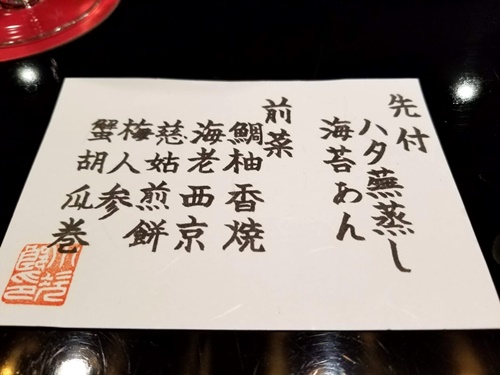 先付
ハタ蕪蒸し
海苔あん
前菜
鯛柚香焼
海老西京
慈姑煎餅
梅人参
蟹胡瓜巻